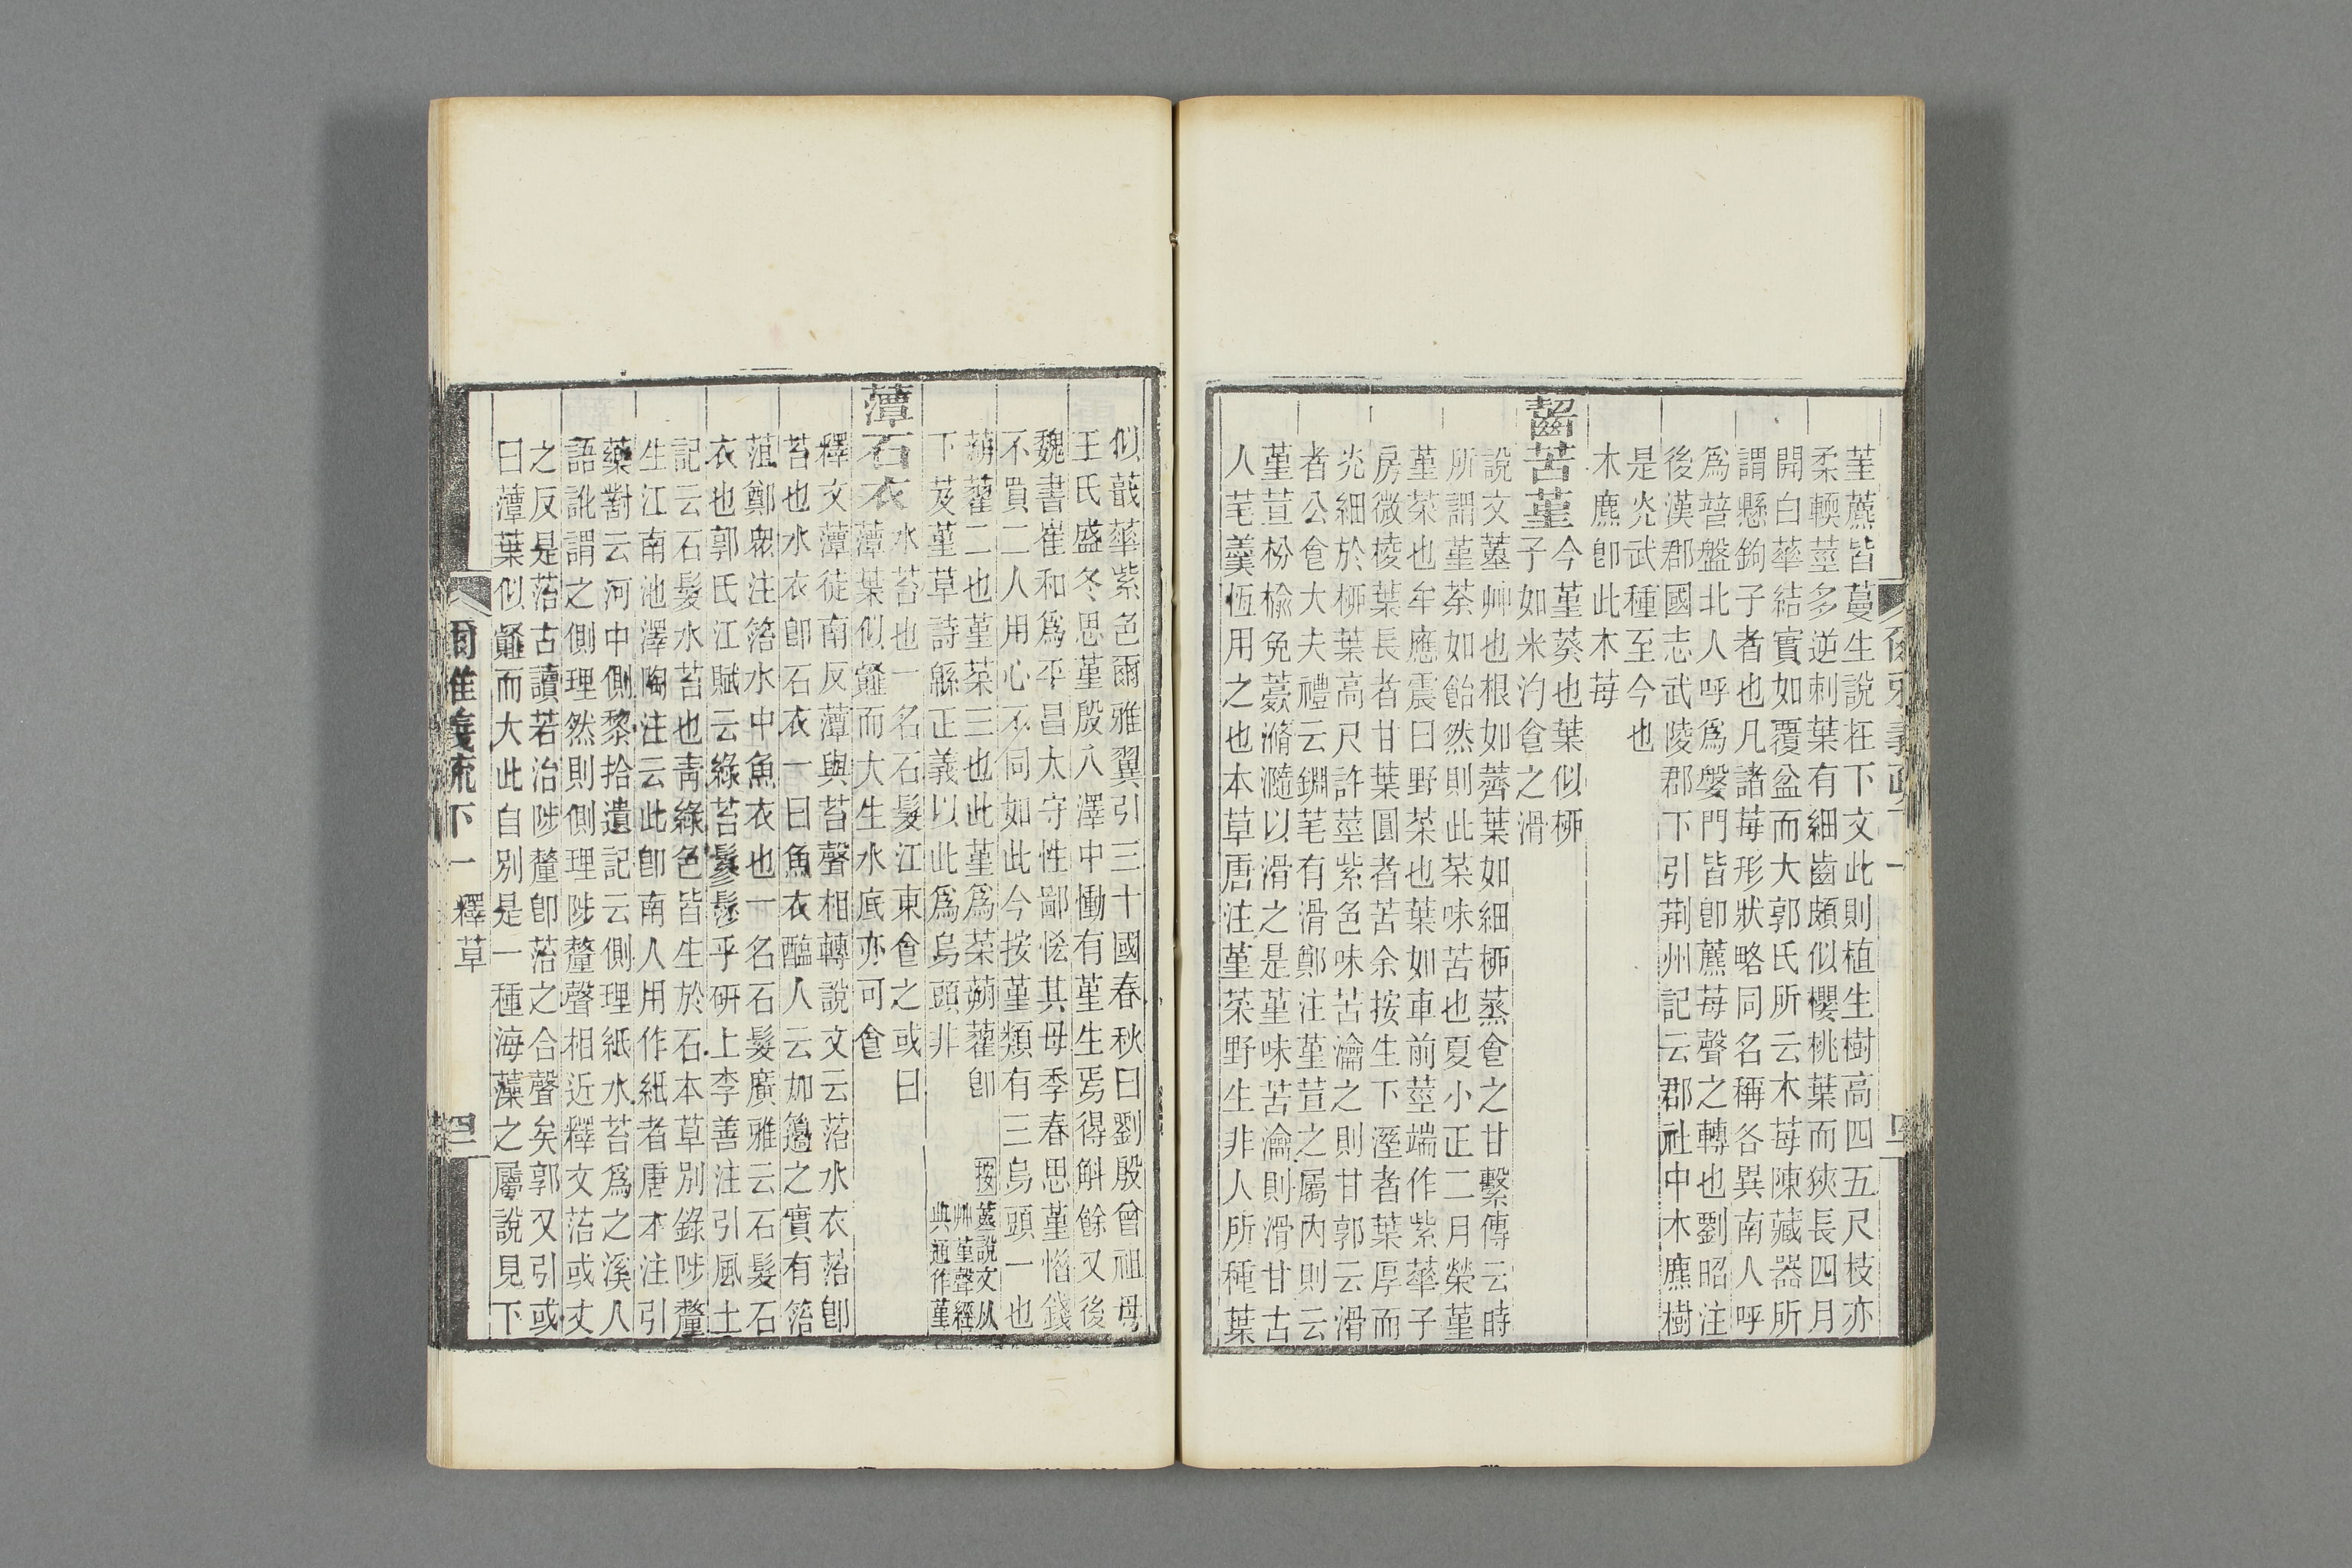 茥藨皆蔓生說在下文此則植生樹高四五尺枝亦
柔輭莖多逆刺葉有細齒頗似櫻桃葉而狹長四月
開白華結實如覆盆而大郭氏所云木莓陳藏器所
謂懸鉤子者也凡諸莓形狀略同名稱各異南人呼
爲普盤北人呼爲媻門皆卽藨莓聲之轉也劉昭注
後漢郡國志武陵郡下引荆州記云郡社中木麃樹
是光武種至今也
木麃卽此木莓
齧苦堇今堇葵也葉似桺
子如米汋食之滑
說文蓳艸也根如薺葉如細桺蒸食之甘繫傳云時
所謂堇荼如飴然則此菜味苦也夏小正二月榮堇
堇菜也牟應震曰野菜也葉如車前莖端作紫華子
房微棱葉長者甘葉圓者苦余按生下溼者葉厚而
光細於桺葉高尺許莖紫色味苦瀹之則甘郭云滑
者公食大夫禮云鉶芼有滑鄭注堇荁之屬內則云
堇荁枌榆免薧滫瀡以滑之是堇味苦瀹則滑甘古
人芼羹恆用之也本草唐注堇菜野生非人所種葉
似蕺華紫色爾雅翼引三十國春秋曰劉殷曾祖母
王氏盛冬思堇殷入澤中慟有堇生焉得斛餘又後
魏書崔和爲平昌太守性鄙恡其母季春思堇惜錢
不買二人用心不同如此今按堇類有三烏頭一也
蒴藋二也堇菜三也此堇爲菜蒴藋卽
下芨堇草詩緜正義以此爲烏頭非
按蓳說文从
艸堇聲經
典通作堇
藫石衣水苔也一名石髮江東食之或曰
藫葉似䪥而大生水底亦可食
釋文藫徒南反藫與苔聲相轉說文云菭水衣菭卽
苔也水衣卽石衣一曰魚衣醢人云加籩之實有箈
菹鄭衆注箈水中魚衣也一名石髮廣雅云石髮石
衣也郭氏江賦云綠苔鬖髿乎研上李善注引風土
記云石髮水苔也靑綠色皆生於石本草別錄陟釐
生江南池澤陶注云此卽南人用作紙者唐本注引
藥對云河中側黎拾遺記云側理紙水苔爲之溪人
語訛謂之側理然則側理陟釐聲相近釋文菭或丈
之反是菭古讀若治陟釐卽菭之合聲矣郭又引或
曰藫葉似䪥而大此自別是一種海藻之屬說見下
爾雅義疏下一　釋草